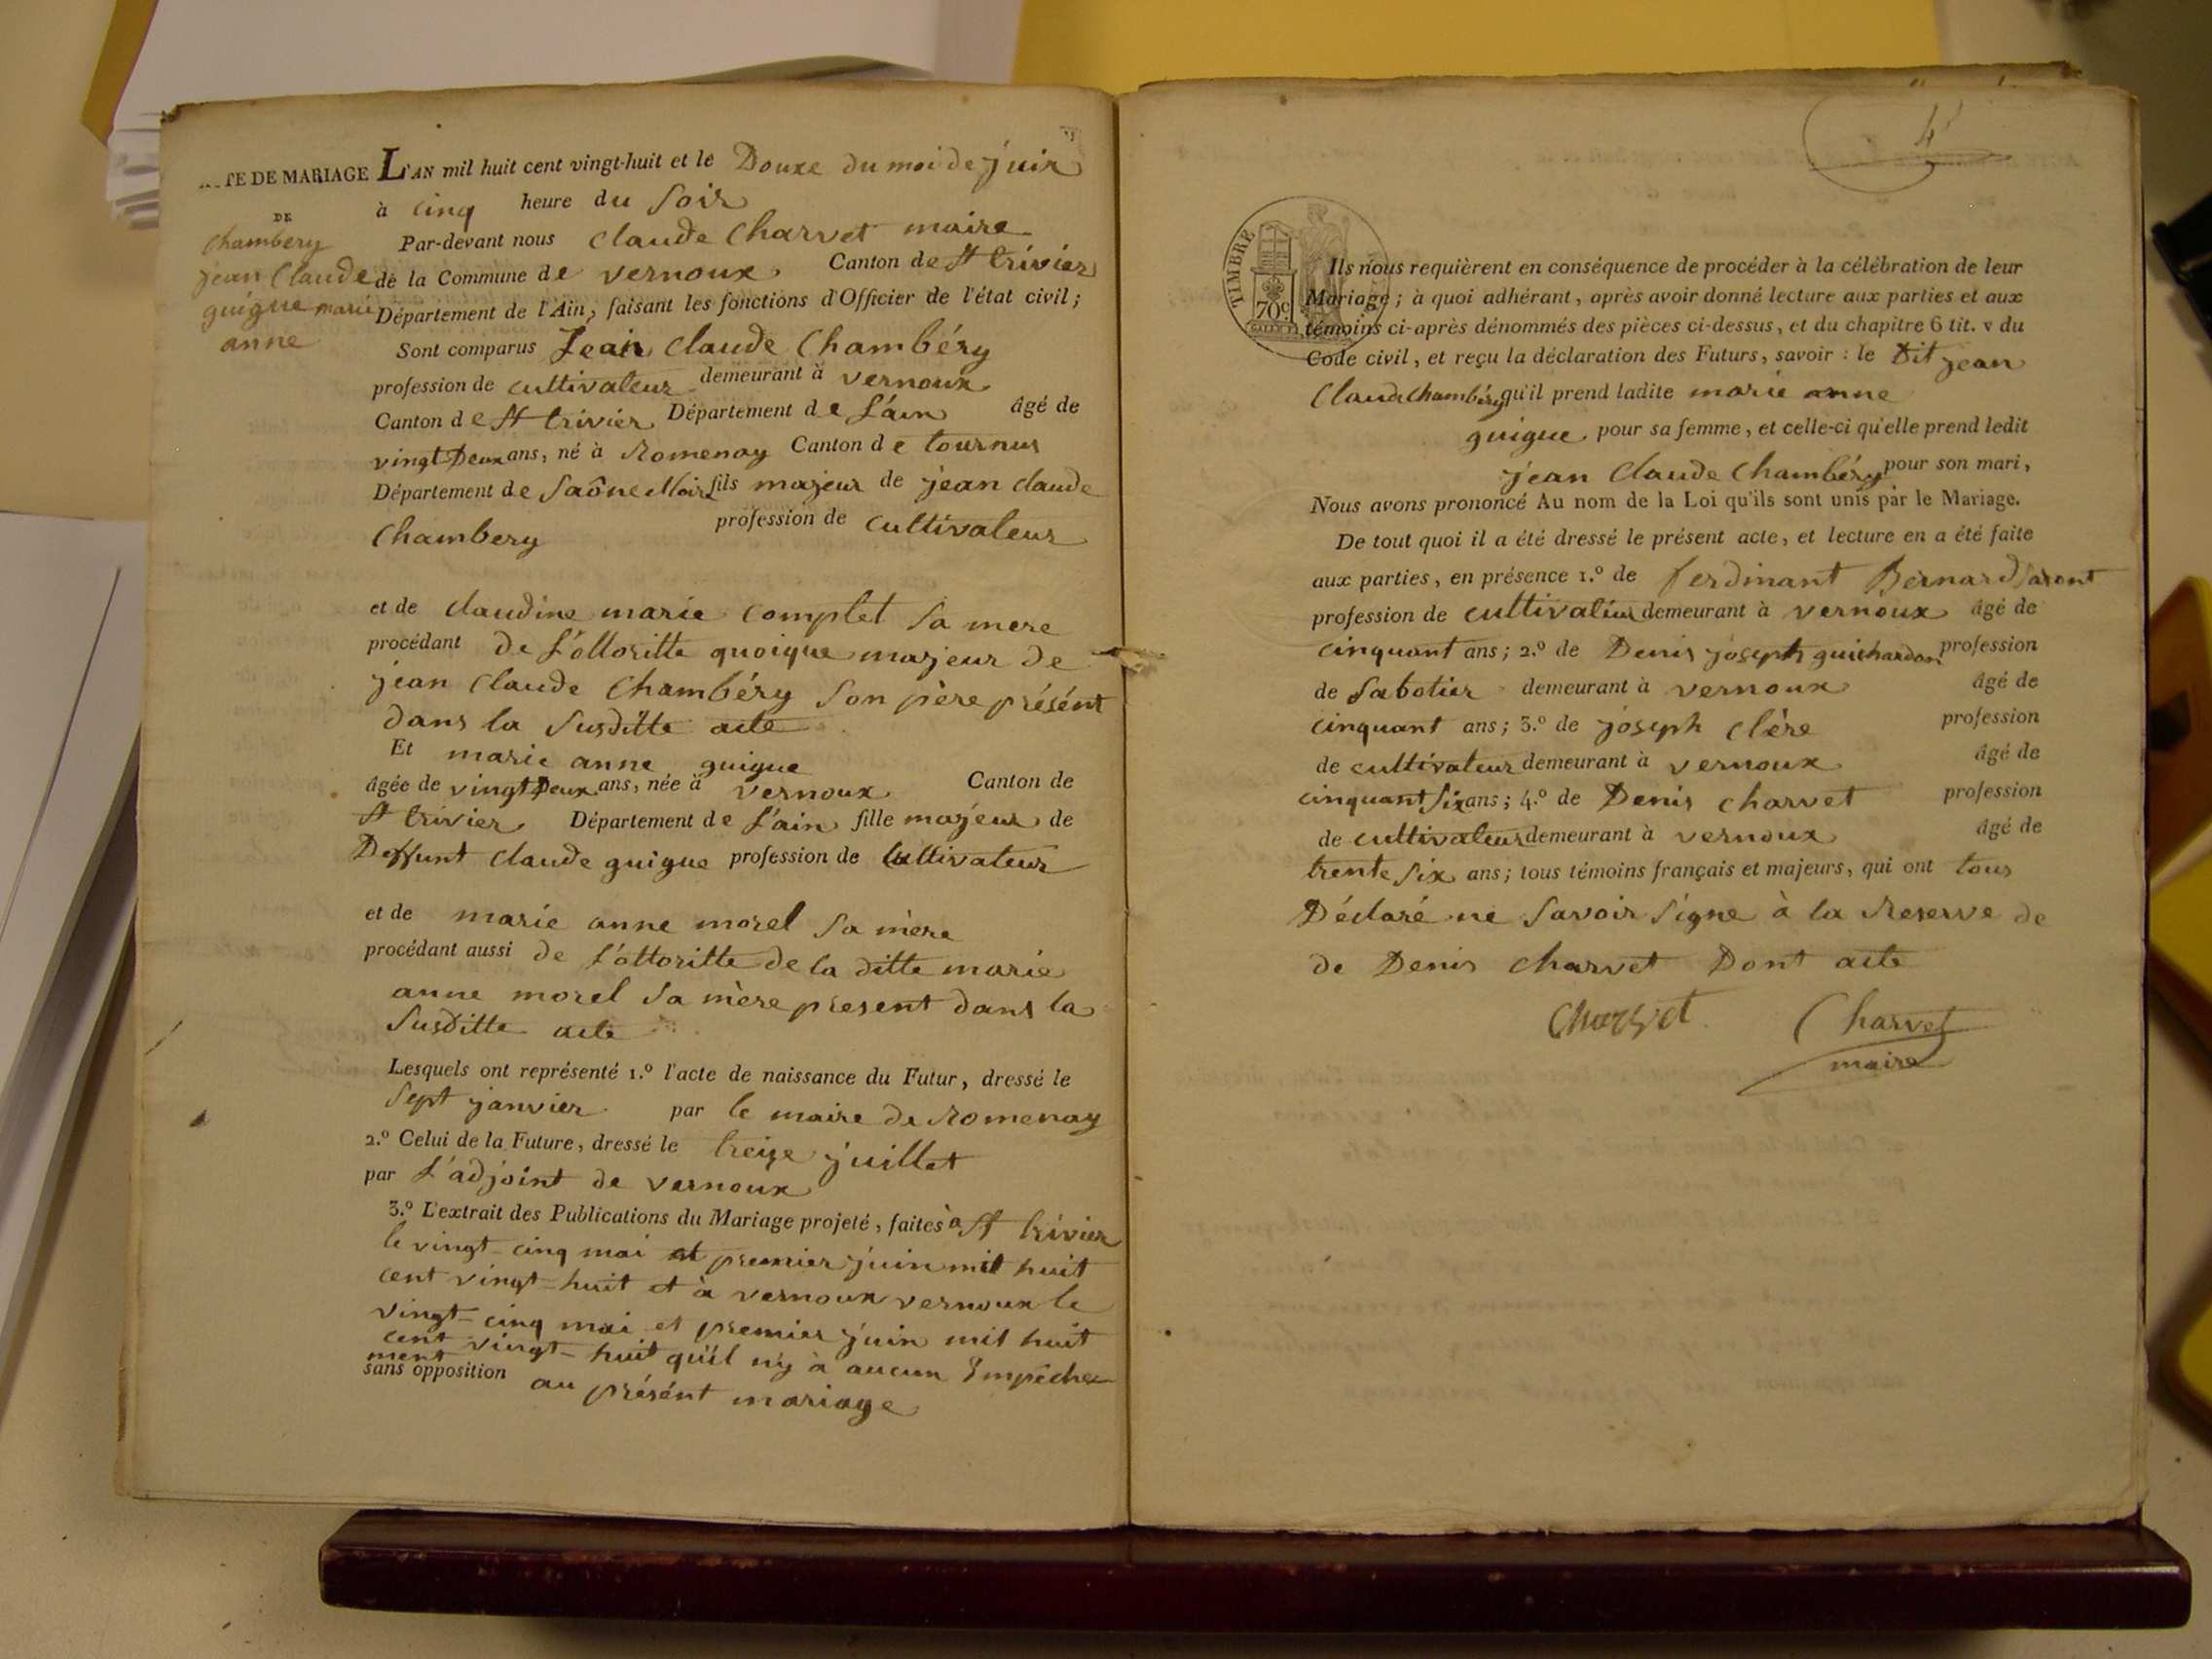 TE DE MARIAGE L'AN mil huit cent vingt-huit et le Douxe du moi de juin
à cinq heure du soir
DE
chambery
jean Claude
guigue marie
anne
Par-devant nous Claude Charvet maire
de la Commune de vernoux Canton de st trivier
Département de l'Ain, faisant les fonctions d'Officier de l'état civil;
Sont comparus Jean Claude Chambéry
profession de cultivateur demeurant à vernoux
Canton de st trivier Département de L'ain âgé de
vingt Deux ans, né à Romenay Canton de tournus
Département de Saône fils majeur de jean claude
Chambery profession de cultivateur
et de claudine marie complet sa mere
procédant de quoique majeur de
jean claude Chambéry son père présént
dans la susditte acte
Et marie anne guigue
âgée de vingt Deux ans, née à vernoux Canton de
st trivier Département de L'ain fille majeur de
Deffunt claude guigue profession de cultivateur
et de marie anne morel sa mère
procédant aussi de L'ottoritte de la ditte marie
anne morel sa mère present dans la
susditte acte
Lesquels ont représenté 1.º l'acte de naissance du Futur, dressé le
sept janvier par le maire de Romenay
2.º Celui de la Future, dressé le treize juillet
par L'adjoint de vernoux
3.º L'extrait des Publications du Mariage projeté, faites à st trivier
le vingt-cinq mai et premier juin mil huit
cent vingt-huit et à vernoux vernoux le
vingt-cinq mai et premier juin mil huit
cent vingt-huit qu'il n'y à aucun Empêche
ment
sans opposition au présént mariage
4
TIMBRE
70c
Ils nous requièrent en conséquence de procéder à la célébration de leur
Mariage; à quoi adhérant, après avoir donné lecture aux parties et aux
témoins ci-après dénommés des pièces ci-dessus, et du chapitre 6 tit. v du
Code civil, et reçu la déclaration des Futurs, savoir: le Dit jean
Claud chambéry qu'il prend ladite marie anne
guigue pour sa femme, et celle-ci qu'elle prend ledit
jean Claude Chambéry pour son mari,
Nous avons prononcé Au nom de la Loi qu'ils sont unis par le Mariage.
De tout quoi il a été dressé le présent acte, et lecture en a été faite
aux parties, en présence 1.º de ferdinant Bernard
profession de cultivateur demeurant à vernoux âgé de
cinquant ans; 2.º de Denis joseph guichardon profession
de sabotier demeurant à vernoux âgé de
cinquant ans; 3.º de joseph clère profession
de cultivateur demeurant à vernoux âgé de
cinquant six ans; 4.º de Denis charvet profession
de cultivateur demeurant à vernoux âgé de
trente six ans; tous témoins français et majeurs, qui ont tous
Déclaré ne savoir signe à la Reserve de
de Denis charvet Dont acte
Charvet Charvet
maire